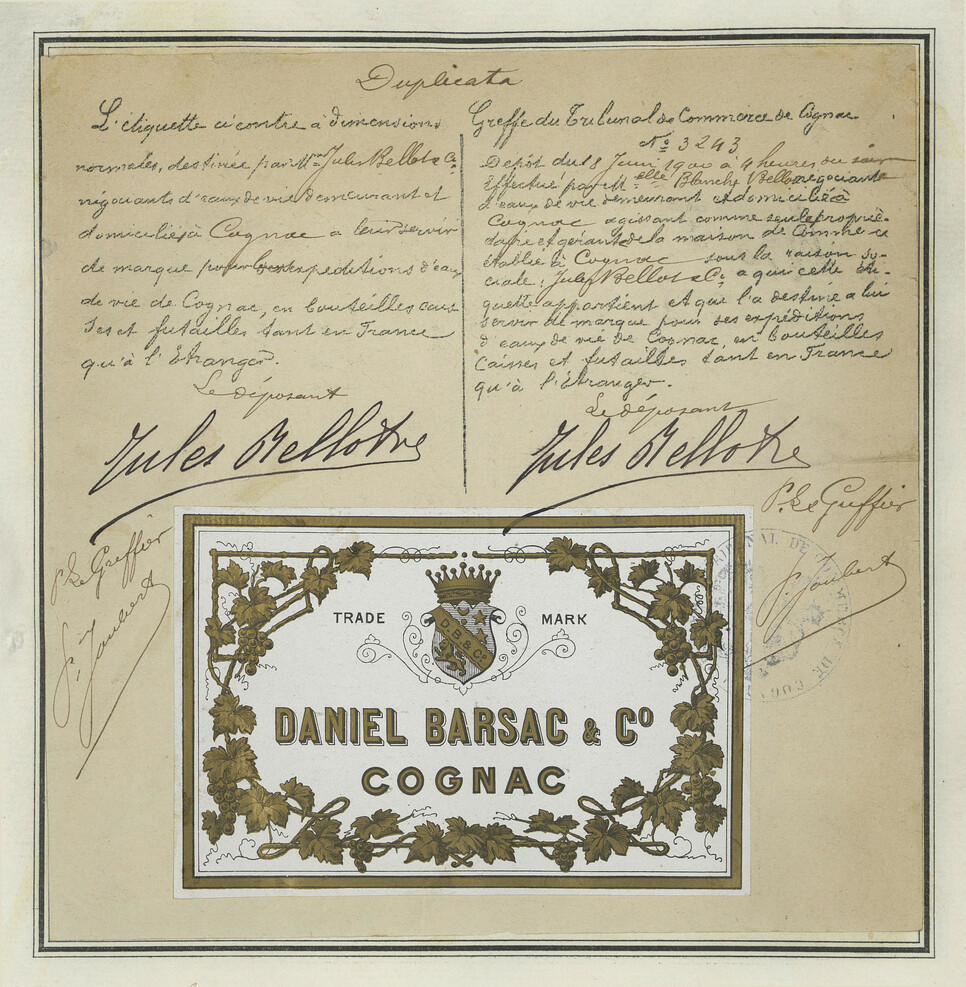 Duplicata
L'étiquette ci contre a dimensions
normales, destinée par M.rs Jules Bellot & Cie
négociants d'eaux de vie demeurant et
domiciliés à Cognac a leur servir
de marque pour leurs expeditions d'eaux
de vie de Cognac, en bouteilles cais
ses et futailles tant en France
qu'à l'Étranger.
Le déposant
Jules Bellot & Cie
Greffe du Tribunal de Commerce de Cognac
No 3243
Depôt du Juin 1900 à 4 heures du soir
Effectué par M elle Blanche Bellot négociante
d'eaux de vie demeurant et domiciliée à
Cognac agissant comme seule proprié-
taire et gérante de la maison de Commerce
établie à Cognac sous la raison so-
ciale: Jules Bellot & Cie a qui cette éti-
quette appartient et qui l'a destiné a lui
servir de marque pour ses expéditions
d'eaux de vie de Cognac, en bouteilles
Caisses et futailles tant en France
qu'à l'Étranger.
Le déposant
Jules Bellot & Cie
P. Le Greffier
J. Joubert
P. Le Greffier
J. Joubert
TRIBUNAL DE COMMERCE DE COGNAC
TRADE MARK
D.B & Co
DANIEL BARSAC & Co
COGNAC